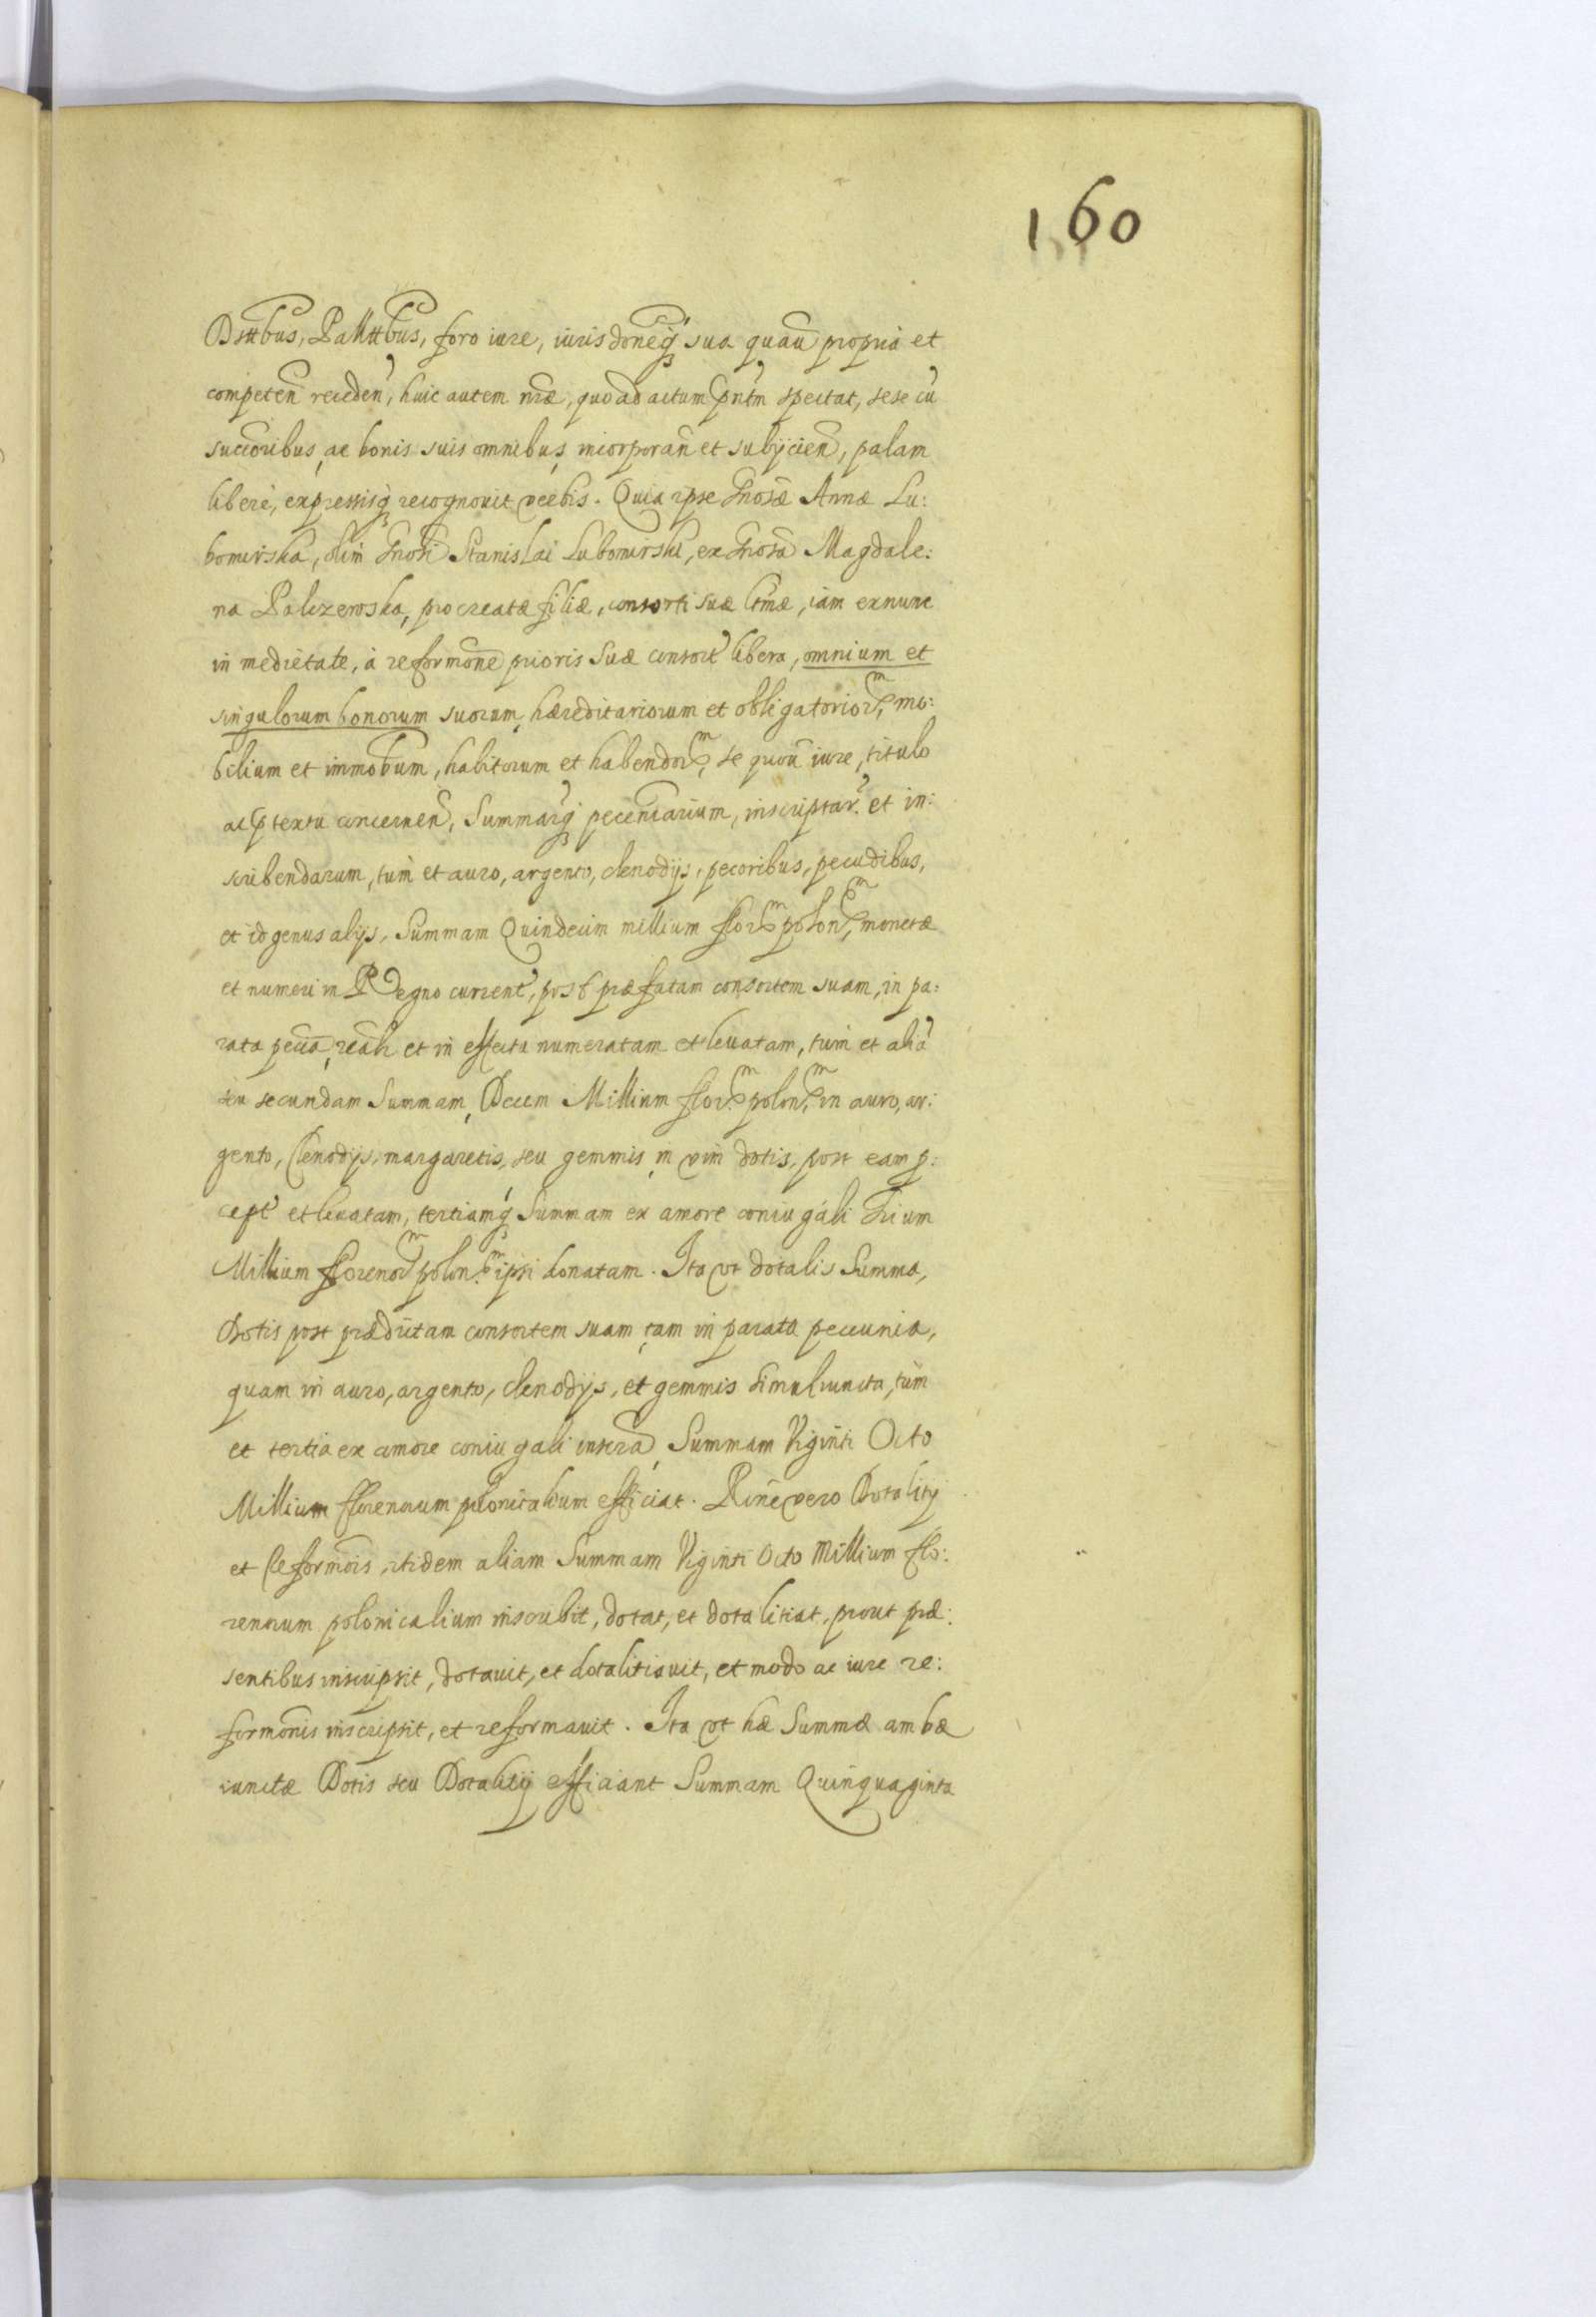 160
Dsttbus, Pallttbus, foro iure, iurisdoneq̃ sua quau propria et
competeñ receden̄, huic autem nræ, quoad actum pntm spectat, sese cu
succoribus, ac bonis suis omnibus, incorporañ et subijcien̄, palam
libere, expressisq̃ recognouit verbis. Quia ipse Gnosæ Annæ Lu:
bomirska, olim Gnosi Stanislai Lubomirski, ex Gnosa Magdale:
na Palczewska, procreatæ filiæ, consorti suæ ltmæ, iam exnunc
in medietate, à reformone prioris suæ consort libera, omnium et
singulorum bonorum suorum, hæreditariorum et obligatorior^m, mo:
bilium et immobum, habitorum et habendor^m, se quou iure, titulo
ac ptextu concernen̄, Summarq̃ pecuniarium, inscriptar. et in:
scribendarum, tum et auro, argento, clenodijs, pecoribus, pecudibus,
et id genus alijs, Summam Quindecim millium flor^m polon^m, monetæ
et numeri in Regno current, post præfatam consortem suam, in pa:
rata pecua, reali et in effectu numeratam et leuatam, tum et alia
seu secundam Summam, Decem Millium flor^m polon^m, in auro, ar:
gento, Clenodijs, margaretis, seu gemmis in vim dotis, post eam p:
cept et leuatam, tertiamq̃ Summam ex amore coniugali Trium
Millium florenor^m polon^m ipsi donatam. Ita vt dotalis Summa,
Dotis post prædictam consortem suam tam in parata peccunia,
quam in auro, argento, clenodijs, et gemmis simul iuncta, tum
et tertia ex amore coniugali inscra, Summam Viginti Octo
Millium florenorum polonicalium efficiat. Rone vero Dotalitij
et Reformois, itidem aliam Summam Viginti Octo Millium flo:
renorum polonicalium inscribit, dotat, et dotalitiat, prout præ:
sentibus inscripsit, dotauit, et dotalitiauit, et modo ac iure re:
formonis inscripsit, et reformauit. Ita vt hæ Summæ ambæ
iunctæ Dotis seu Dotalitij efficiant Summam Quinquaginta